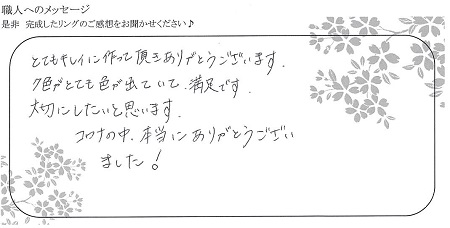 職人へのメッセージ
是非 完成したリングのご感想をお聞かせください♪
とてもキレイに作って頂きありがとうございます.
夕色がとても色が出ていて、満足です.
大切にしたいと思います.
コロナの中、本当にありがとうござい
ました!